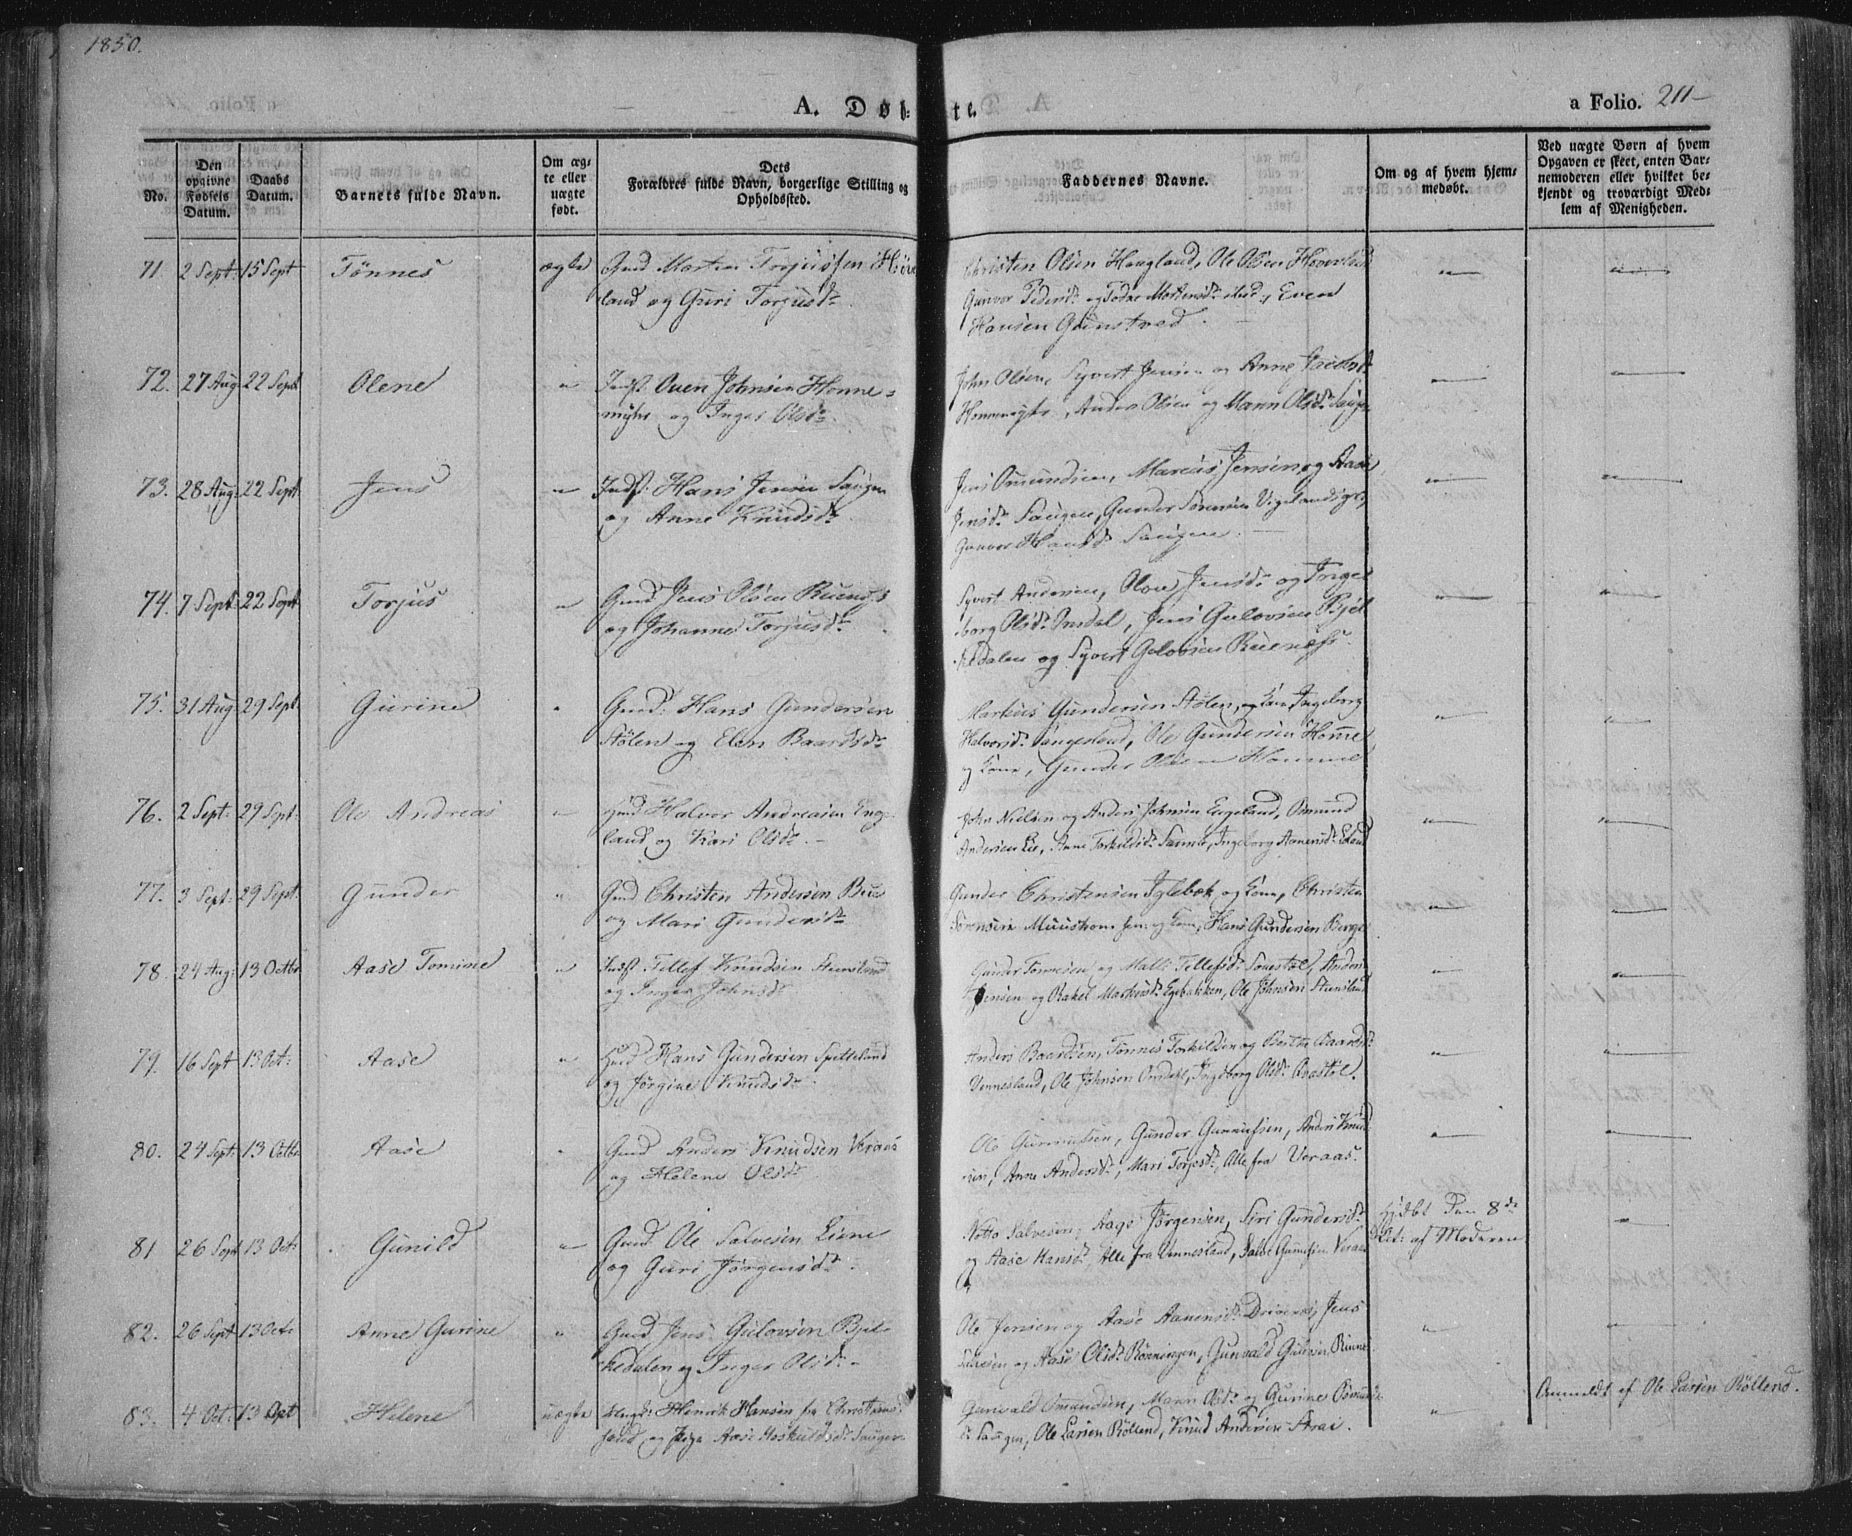 1850.
A. Døbte.
a Folio. 211
No.
Den opgivne Fødsels Datum.
Daabs Datum.
Barnets fulde Navn.
Om ægte eller uægte født.
Dets Forældres fulde Navn, borgerlige Stilling og Opholdssted.
Faddernes Navne.
Om og af hvem hjemmedøbt.
Ved uægte Børn af hvem Opgaven er skeet, enten Barnemoderen eller hvilket bekjendt og troværdigt Medlem af Menigheden.
71. 2 Sept: 15 Sept Tönnes ægte Gmd Morten Torjussen
land og Guri Torjusdr
Christen Olsen Haugland, Ole Olsen
Gunvor Pedersdr og Todne Mortensdr ibid:, Even
Hansen Gunstved.
72. 27 Aug 22 Sept Olene " Indst. Ouen Johnsen Honne-
myhr og Inger Olsdr
John Olsen, Syvert Jensen og Anne
Honnemyhr, Anders Olsen og Maren Olsdr
73. 28 Aug: 22 Sept Jens " Indst: Hans Jensen Saugen
og Anne Knudsdr
Jens Omundsen, Marcus Jensen og Aase
Jensdr Saugen, Gunder Sörensen
Gunvor Hansdr Saugen.
74. 7 Sept: 22 Sept Torjus " Gmd Jens Olsen
og Johanne Torjusdr
Syvert Andersen, Olou Jensdr og Inge-
borg Olsdr Omdal, Jens Gulovsen Bjel-
kedalen og Syvert Gulovsen
75. 31 Aug 29 Sept. Gurine " Gmd: Hans Gundersen
Stölen og Elen Baardsdr
Markus Gundersen Stölen, og Kone Ingeborg
Halvorsdr Langeland, Ole Gundersen Homme
og Kone, Gunder Olsen Homme
76. 2 Sept: 29 Sept: Ole Andreas " Gmd Halvor Andreasen Eng-
land og Kari Olsdr
John Nielsen og Anders Johnsen Eegeland, Omund
Andersen Lie, Anne Torkildsdr, Ingeborg Aanensdr
77. 3 Sept: 29 Sept: Gunder " Gmd Christen Andersen Bue
og Mari Gundersdr
Gunder Christensen Iglebæk og Kone, Christen
Sörensen Muustom sen: og Kone, Hans Gundersen Berge
78. 24 Aug: 13 Octbr Aase Tomine " Indst: Tellef Knudsen Stensland
og Inger Johnsdr
Gunder Tönnesen og Malli Tellefsdr, Anders
Jensen og Rakel Markusdr Egebakken, Ole Johnsen Stensland
79. 16 Sept 13 Oct: Aase " Gmd Hans Gundersen Spetteland
og Jörgine Knudsdr
Anders Baardsen, Tönnes Torkildsen og Berthe Baardsdr
Vennesland, Ole Johnsen Omdal, Ingeborg Olsdr
80. 24 Sept: 13 Octbr Aase " Gmd Anders Knudsen Veraas
og Helene Olsdr
Ole Gunnufsen, Gunder Gunnufsen, Anders Knud-
sen, Anne Andersdr, Mari Torjesdr, Alle fra Veraas.
81 26 Sept 13 Oct: Gunild " Gmd: Ole Salvesen Liene
og Guri Jörgensdr
Notto Salvesen, Aage Jörgensen, Siri Gundersdr
og Aase Hansdr, Alle fra Vennesland, Salve Gunufsen Veraas
Hjdbt Den 8de
Oct: af Moderen
82. 26 Sept 13 Oct: Anne Gurine " Gmd Jens Gulovsen Bjel-
kedalen og Inger Olsdr
Ole Jensen og Aase Aanensdr, Jens
Salvesen og Aase Olsdr Rönningen, Gunvald
83. 4 Oct: 13 Oct Helene uægte Ungk: Henrik Hansen fra Christian-
sand og Pige Aase Hoskuldsdr Saugen
Gunvald Omundsen, Maren Olsdr og Gurine
Saugen, Ole Larsen Röllend, Knud Andersen
Anmeldt af Ole Larsen Röllend.